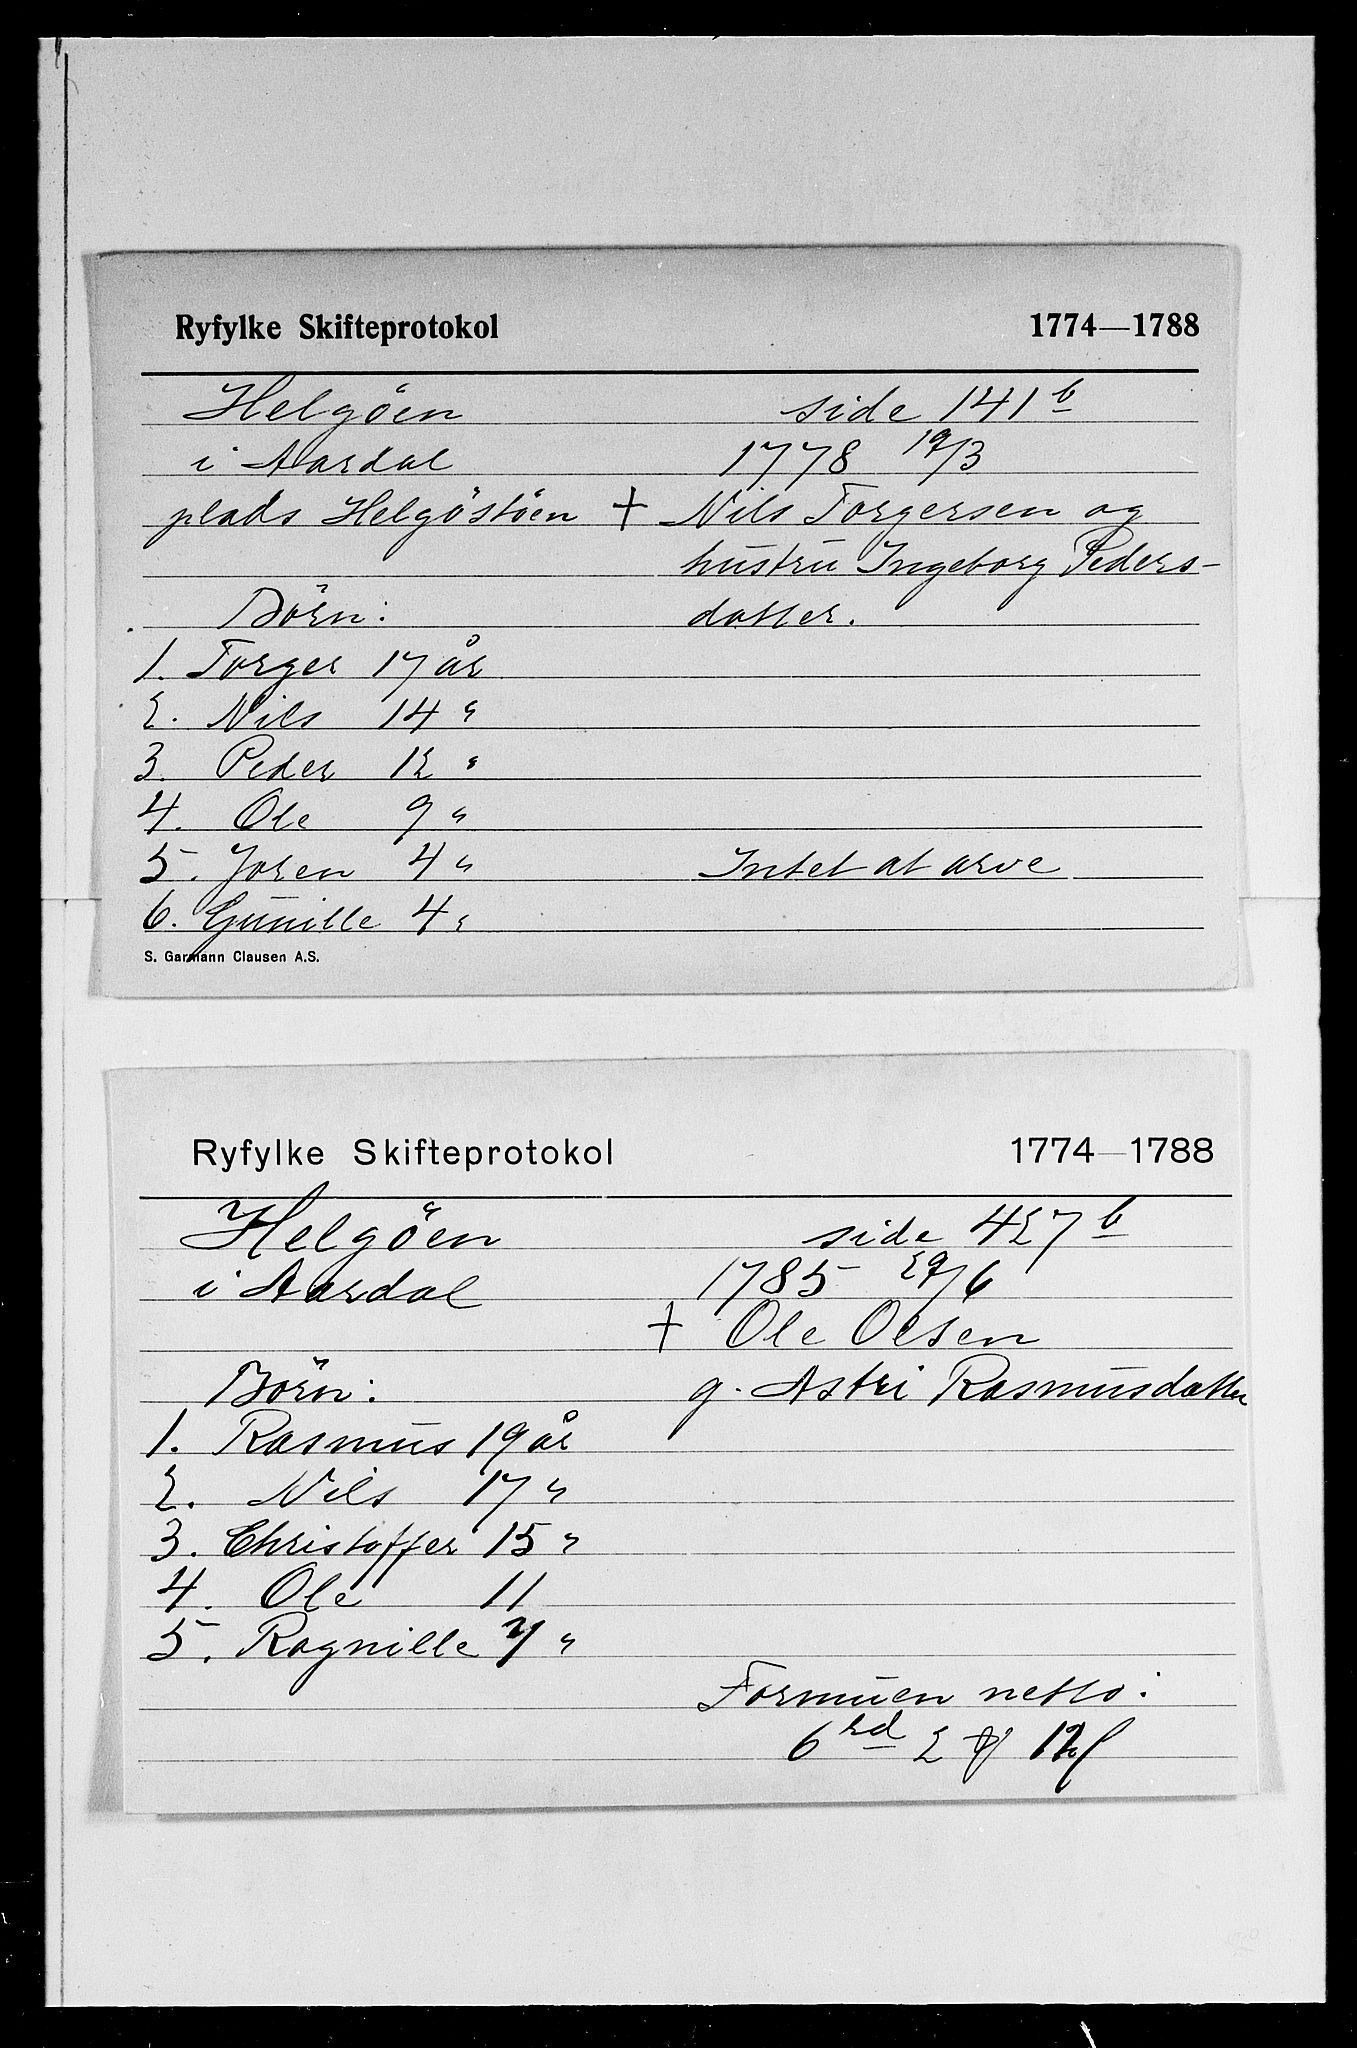 Ryfylke Skifteprotokol 1774—1788
Helgöen side 141 b
i Aardal 1778 19/3
plads Helgöstöen † Nils Torgersen og
hustru Ingeborg Peders-
Börn: datter.
1. Torger 17 år
2. Nils 14 "
3. Peder 12 "
4. Ole 9 "
5. Joren 4 " Intet at arve
6. Gunille 4 "
S. Garmann Clausen A.S.
Ryfylke Skifteprotokol 1774—1788
Helgöen side 427 b
i Aardal 1785 29/6
† Ole Olsen
Börn: g. Astri Rasmusdatter
1. Rasmus 19 år
2. Nils 17 "
3. Christoffer 15 "
4. Ole 11
5. Ragnille 7 "
Formuen netto:
6 rd 2 12